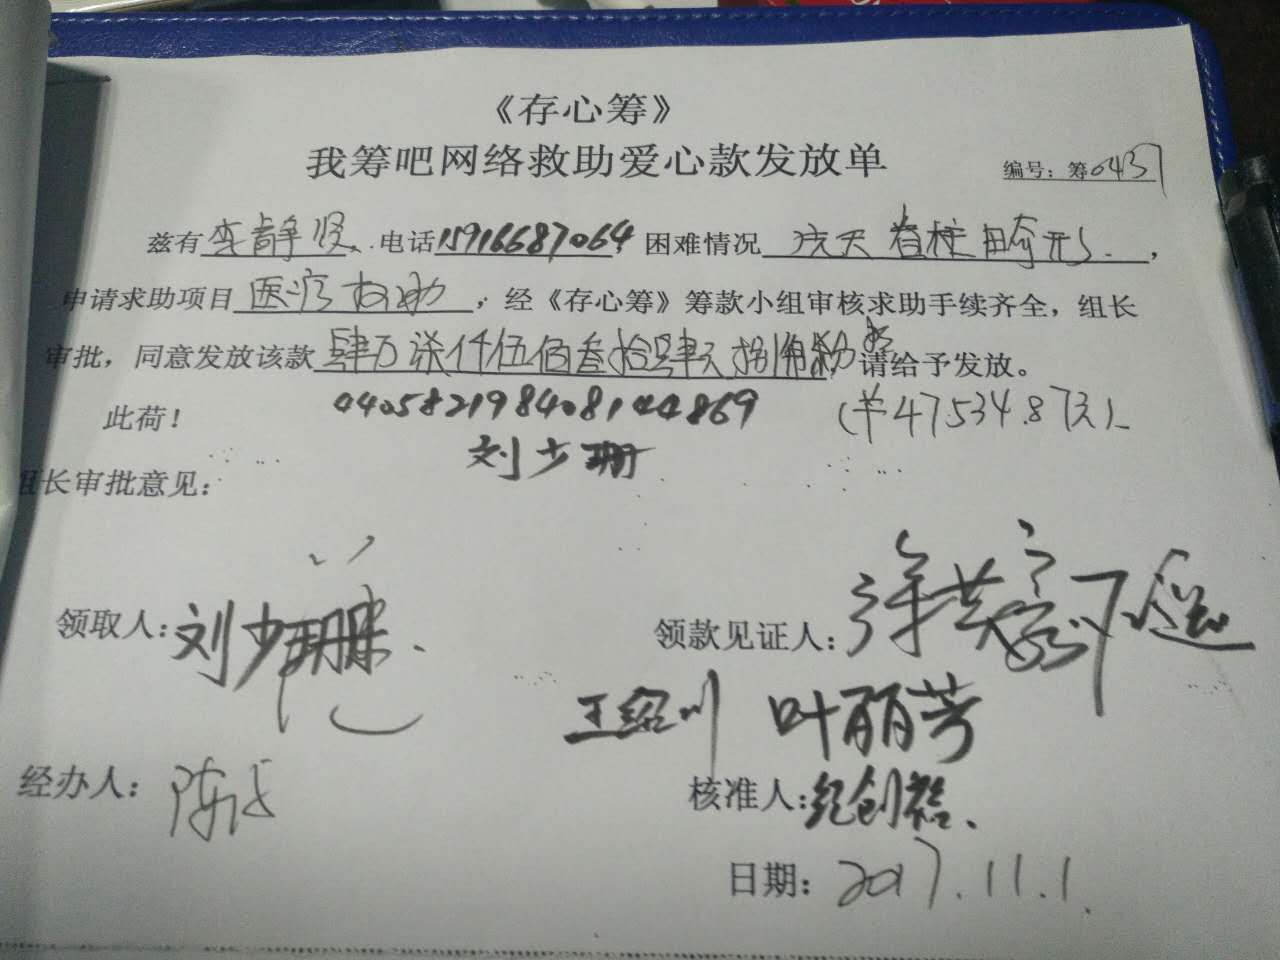 《存心筹》
我筹吧网络救助爱心款发放单
编号：筹0437
兹有李静贤、电话15916687064 困难情况 先天脊柱畸形、，
申请求助项目 医疗救助 ，经《存心筹》筹款小组审核求助手续齐全，组长
审批，同意发放该款肆万柒仟伍佰叁拾肆元捌角柒分 请给予发放。
此荷！ 440582198408144869 (￥47534.87元)
刘少珊
组长审批意见：
领取人：刘少珊 领款见证人：
王绍川 叶丽芳
经办人：陈 核准人：纪创
日期：2017.11.1.